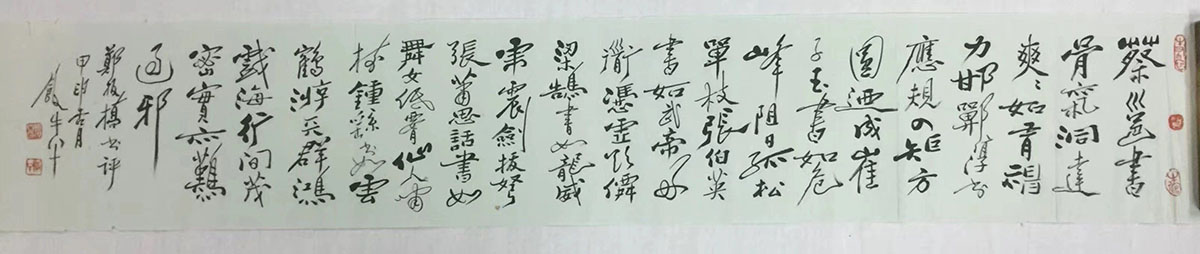 蔡邕書
骨氣洞達
爽〻如有神
力邯鄲淳書
應規入矩方
圓迺成崔
子玉書如危
峰阻日孤松
單枝張伯英
書如武帝愛
道憑虛欲僊
梁鵠書如龍威
虎震劍拔弩
張蕭思話書如
舞女低腰仙人嘯
樹鍾繇書如雲
鶴游天群鴻
戲海行間茂
密實亦難
過邪
鄭板橋書評
甲申月
牛八十